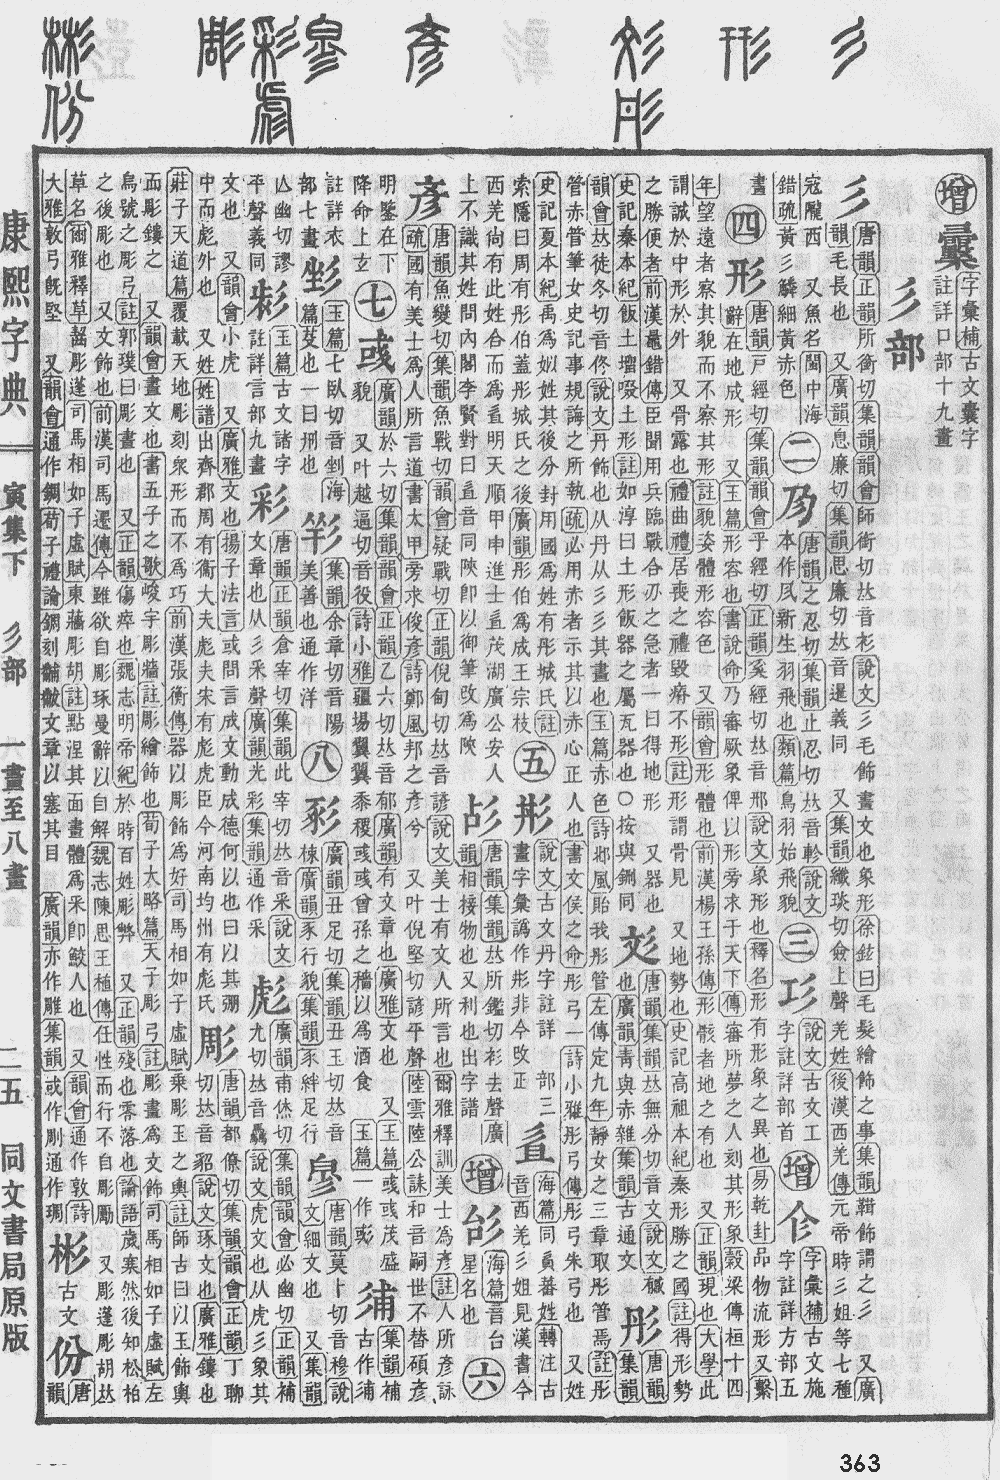 彡部
字彙補古文囊字
註詳口部十九畫
彡
唐韻正韻所銜切集韻韻會師銜切𠀤音衫說文彡毛飾畫文也象形徐鉉曰毛髮繪飾之事集韻鞙飾謂之彡 又廣
韻毛長也 又廣韻息廉切集韻思廉切𠀤音暹義同 又集韻纖琰切僉上聲羌姓後漢西羌傳元帝時彡姐等七種
寇隴西 又魚名閩中海
錯疏黃彡鱗細黃赤色
二
唐韻之忍切集韻止忍切𠀤音軫說文
新生羽飛也類篇鳥羽始飛貌
三
說文古文工
字註詳部首
增
字彙補古文施
字註詳方部五
畫
四
形
唐韻戸經切集韻韻會乎經切正韻奚經切𠀤音邢說文象形也釋名形有形象之異也易乾卦品物流形又繫
辭在地成形 又玉篇形容也書說命乃審厥象俾以形旁求于天下傳審所夢之人刻其形象穀梁傳桓十四
年望遠者察其貌而不察其形註貌姿體形容色 又韻會形體也前漢楊王孫傳形骸者地之有也 又正韻現也大學此
謂誠於中形於外 又骨露也禮曲禮居喪之禮毀瘠不形註形謂骨見 又地勢也史記高祖本紀秦形勝之國註得形勢
之勝便者前漢鼂錯傳臣聞用兵臨戰合刃之急者一曰得地形 又器也
史記秦本紀飯土塯啜土形註如淳曰土形飯器之屬瓦器也○按與鉶同
彣
唐韻集韻𠀤無分切音文說文𢒈
也廣韻青與赤雜集韻古通文
彤
唐韻集韻
韻會𠀤徒冬切音佟說文丹飾也从丹从彡彡其畫也玉篇赤色詩邶風貽我彤管左傳定九年靜女之三章取彤管焉註彤
管赤管筆女史記事規誨之所執疏必用赤者示其以赤心正人也書文侯之命彤弓一詩小雅彤弓傳彤弓朱弓也 又姓
史記夏本紀禹爲姒姓其後分封用國爲姓有彤城氏註
索隱曰周有彤伯蓋彤城氏之後廣韻彤伯爲成王宗枝
五
說文古文丹字註詳
畫字彙譌作彤非今改正
海篇同
音西羌彡姐見漢書今
西羌尙有此姓合而爲
上不識其姓問內閣李賢對曰
唐韻集韻𠀤所鑑切衫去聲廣
韻相接物也 又利也出字譜
增
海篇音台
星名也
六
彥
唐韻魚變切集韻魚戰切韻會疑戰切正韻倪甸切𠀤音諺說文美士有文人所言也爾雅釋訓美士爲彥註人所彥詠
疏國有美士爲人所言道書太甲旁求俊彥詩鄭風邦之彥兮 又叶倪堅切諺平聲陸雲陸公誄和音嗣世不替碩彥
明鑒在下
降命上玄
七
彧
廣韻於六切集韻韻會正韻乙六切𠀤音郁廣韻有文章也廣雅文也 又玉篇彧彧茂盛
貌 又叶越逼切音役詩小雅疆場翼翼黍稷彧彧曾孫之穡以爲酒食
集韻補
古作浦
註詳衣
部七畫
玉篇七臥切音剉海
篇芟也一曰刑也
集韻余章切音陽
美善也通作洋
八
廣韻丑足切集韻丑玉切𠀤音
楝廣韻豕行貌集韻豕絆足行
唐韻莫卜切音穆說
文細文也 又集韻
平聲義同
玉篇古文諸字
註詳言部九畫
彩
唐韻正韻倉宰切集韻此宰切𠀤音采說文
文章也从彡采聲廣韻光彩集韻通作采
彪
廣韻甫烋切集韻韻會必幽切正韻補
尤切𠀤音驫說文虎文也从虎彡象其
文也 又韻會小虎 又廣雅文也揚子法言或問言成文動成德何以也曰以其弸
中而彪外也 又姓姓譜出齊郡周有衞大夫彪夫宋有彪虎臣今河南均州有彪氏
彫
唐韻都僚切集韻韻會正韻丁聊
切𠀤音貂說文琢文也廣雅鏤也
莊子天道篇覆載天地彫刻衆形而不爲巧前漢張衡傳器以彫飾爲好司馬相如子虛賦乗彫玉之輿註師古曰以玉飾輿
而彫鏤之 又韻會畫文也書五子之歌峻宇彫牆註彫繪飾也荀子大略篇天子彫弓註彫畫爲文飾司馬相如子虛賦左
烏號之彫弓註郭璞曰彫畫也 又正韻傷瘁也魏志明帝紀於時百姓彫弊 又正韻殘也零落也論語歲寒然後知松柏
之後彫也 又文飾也前漢司馬遷傳今雖欲自彫琢曼辭以自解魏志陳思王植傳任性而行不自彫勵 又彫蓬彫胡𠀤
草名爾雅釋草齧彫蓬司馬相如子虛賦東蘠彫胡註點涅其面畫體爲采卽鮫人也 又韻會通作敦詩
大雅敦弓旣堅 又韻會通作鋼荀子禮論鋼刻黼黻文章以塞其目 廣韻亦作雕集韻或作剛通作琱
彬
古文
份
唐
韻
康熙字典 寅集下 彡部 一畫至八畫 二五 同文書局原版
363